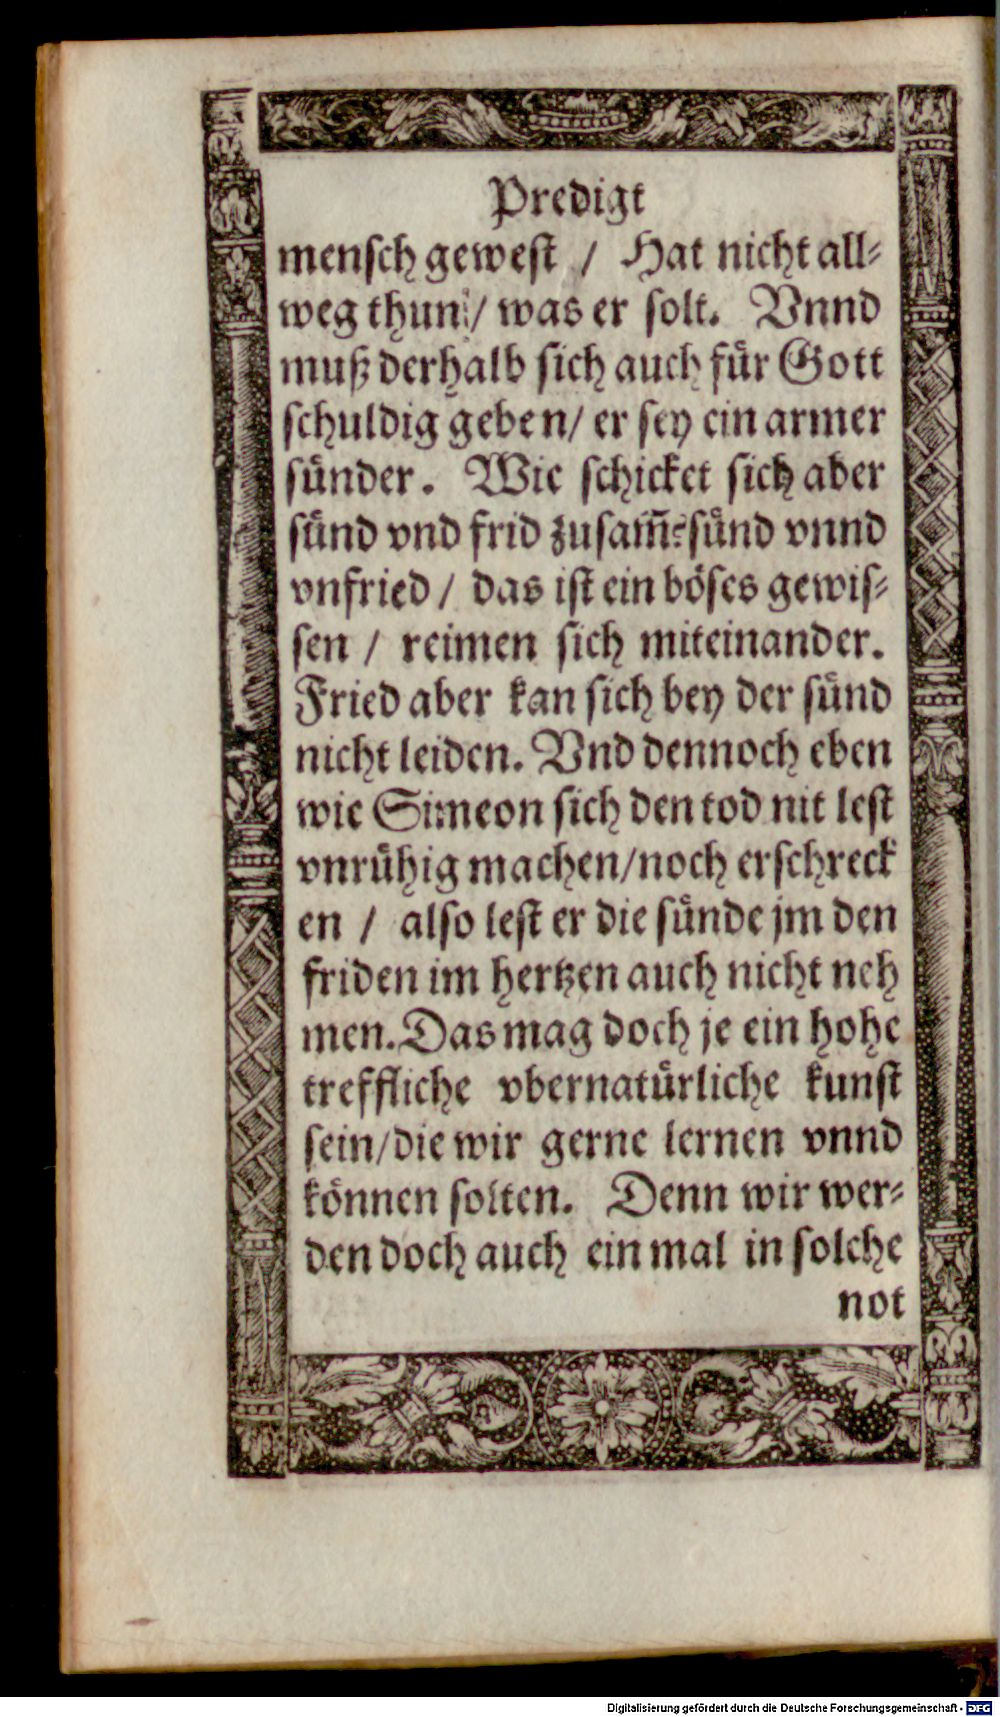 Predigt
mensch gewest / Hat nicht all⸗
weg thun / was er solt. Vnnd
muß derhalb sich auch für Gott
schuldig geben / er sey ein armer
sünder. Wie schicket sich aber
sünd vnd frid zusam̄? sünd vnnd
vnfried / das ist ein böses gewis⸗
sen / reimen sich miteinander.
Fried aber kan sich bey der sünd
nicht leiden. Vnd dennoch eben
wie Simeon sich den tod nit lest
vnrühig machen / noch erschreck
en / also lest er die sünde jm den
friden im hertzen auch nicht neh
men. Das mag doch je ein hohe
treffliche vbernatürliche kunst
sein / die wir gerne lernen vnnd
können solten. Denn wir wer⸗
den doch auch ein mal in solche
not
Digitalisierung gefördert durch die Deutsche Forschungsgemeinschaft - DFG